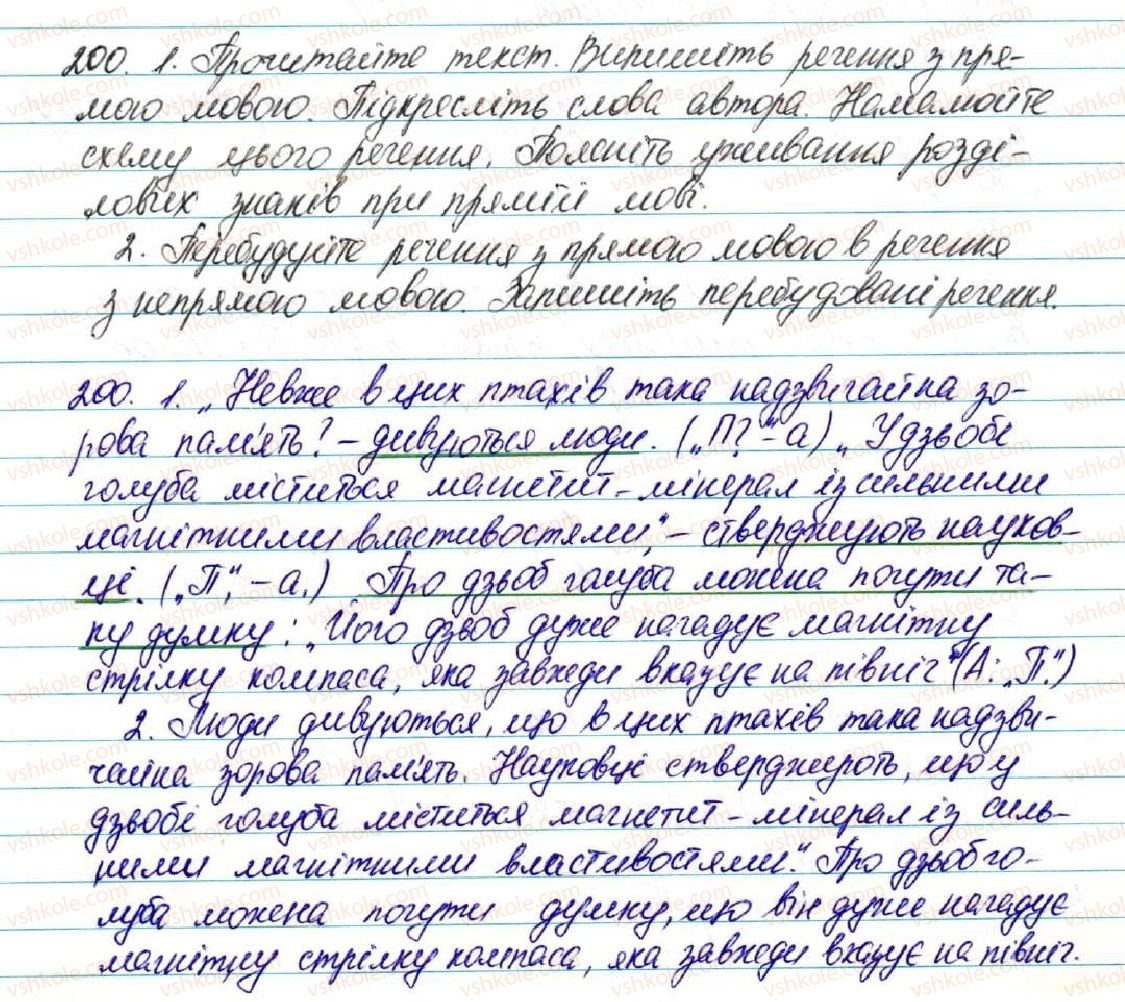 200. 1. Прочитайте текст. Випишіть речення з пря-
мою мовою. Підкресліть слова автора. Намалюйте
схему цього речення. Поясніть уживання розді-
лових знаків при прямій мові.
2. Перебудуйте речення з прямою мовою в речення
з непрямою мовою. Запишіть перебудовані речення.
200. 1. „Невже в цих птахів така надзвичайна зо-
рова пам'ять? – дивуються люди. („П?" – а) „У дзьобі
голуба міститься магнетит – мінерал із сильними
магнітними властивостями", – стверджують науков-
ці. („П", – а.) Про дзьоб голуба можна почути та-
ку думку: „Його дзьоб дуже нагадує магнітну
стрілку компаса, яка завжди вказує на північ" (А: „П".)
2. Люди дивуються, що в цих птахів така надзви-
чайна зорова пам'ять. Науковці стверджують, що у
дзьобі голуба міститься магнетит – мінерал із силь-
ними магнітними властивостями." Про дзьоб го-
луба можна почути думку, що він дуже нагадує
магнітну стрілку компаса, яка завжди вказує на північ.